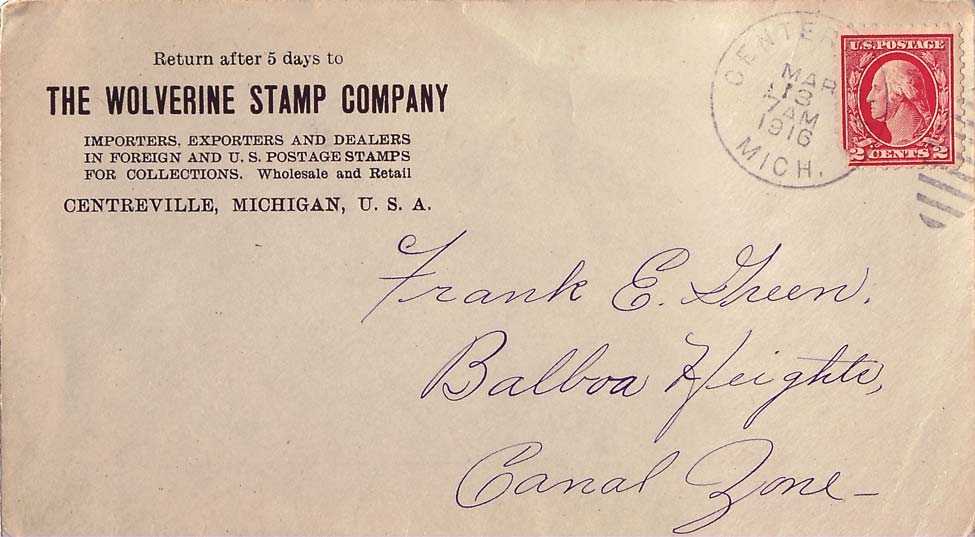 Return after 5 days to
THE WOLVERINE STAMP COMPANY
IMPORTERS, EXPORTERS AND DEALERS
IN FOREIGN AND U. S. POSTAGE STAMPS
FOR COLLECTIONS. Wholesale and Retail
CENTREVILLE, MICHIGAN, U. S. A.
CENTER
MAR
13
7 AM
1916
MICH.
U.S. POSTAGE
2 CENTS 2
Frank E. Green.
Balboa Heights,
Canal Zone